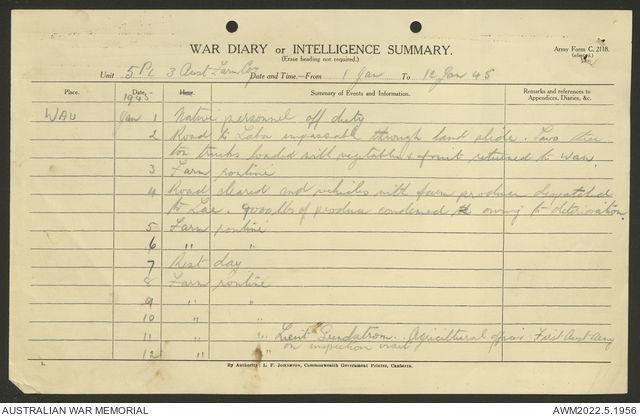 WAR DIARY or INTELLIGENCE SUMMARY.
(Erase heading not required.)
Army Form C. 2118.
(adapted.)
Unit 5 Pl 3 Aust Farm Coy Date and Time.—From 1 Jan To 12 Jan 45
Place. Date. Hour. Summary of Events and Information. Remarks and references to Appendices, Diaries, &c.
1945
WAU Jan 1 Native personnel off duty
2 Road to Labu impassable through land slide. Two three
ton trucks loaded with vegetables & fruit returned to Wau.
3 Farm routine
4 Road cleared and vehicles with farm produce despatched
to Lae. 9000 lbs of produce condemned owing to deterioration.
5 Farm routine
6 " "
7 Rest day
8 Farm routine
9 " "
10 " "
11 " " Lieut Lundstrom. Agricultural officer First Aust Army
12 " " on inspection visit
1.
By Authority: L. F. JOHNSTON, Commonwealth Government Printer, Canberra.
AUSTRALIAN WAR MEMORIAL
AWM2022.5.1956